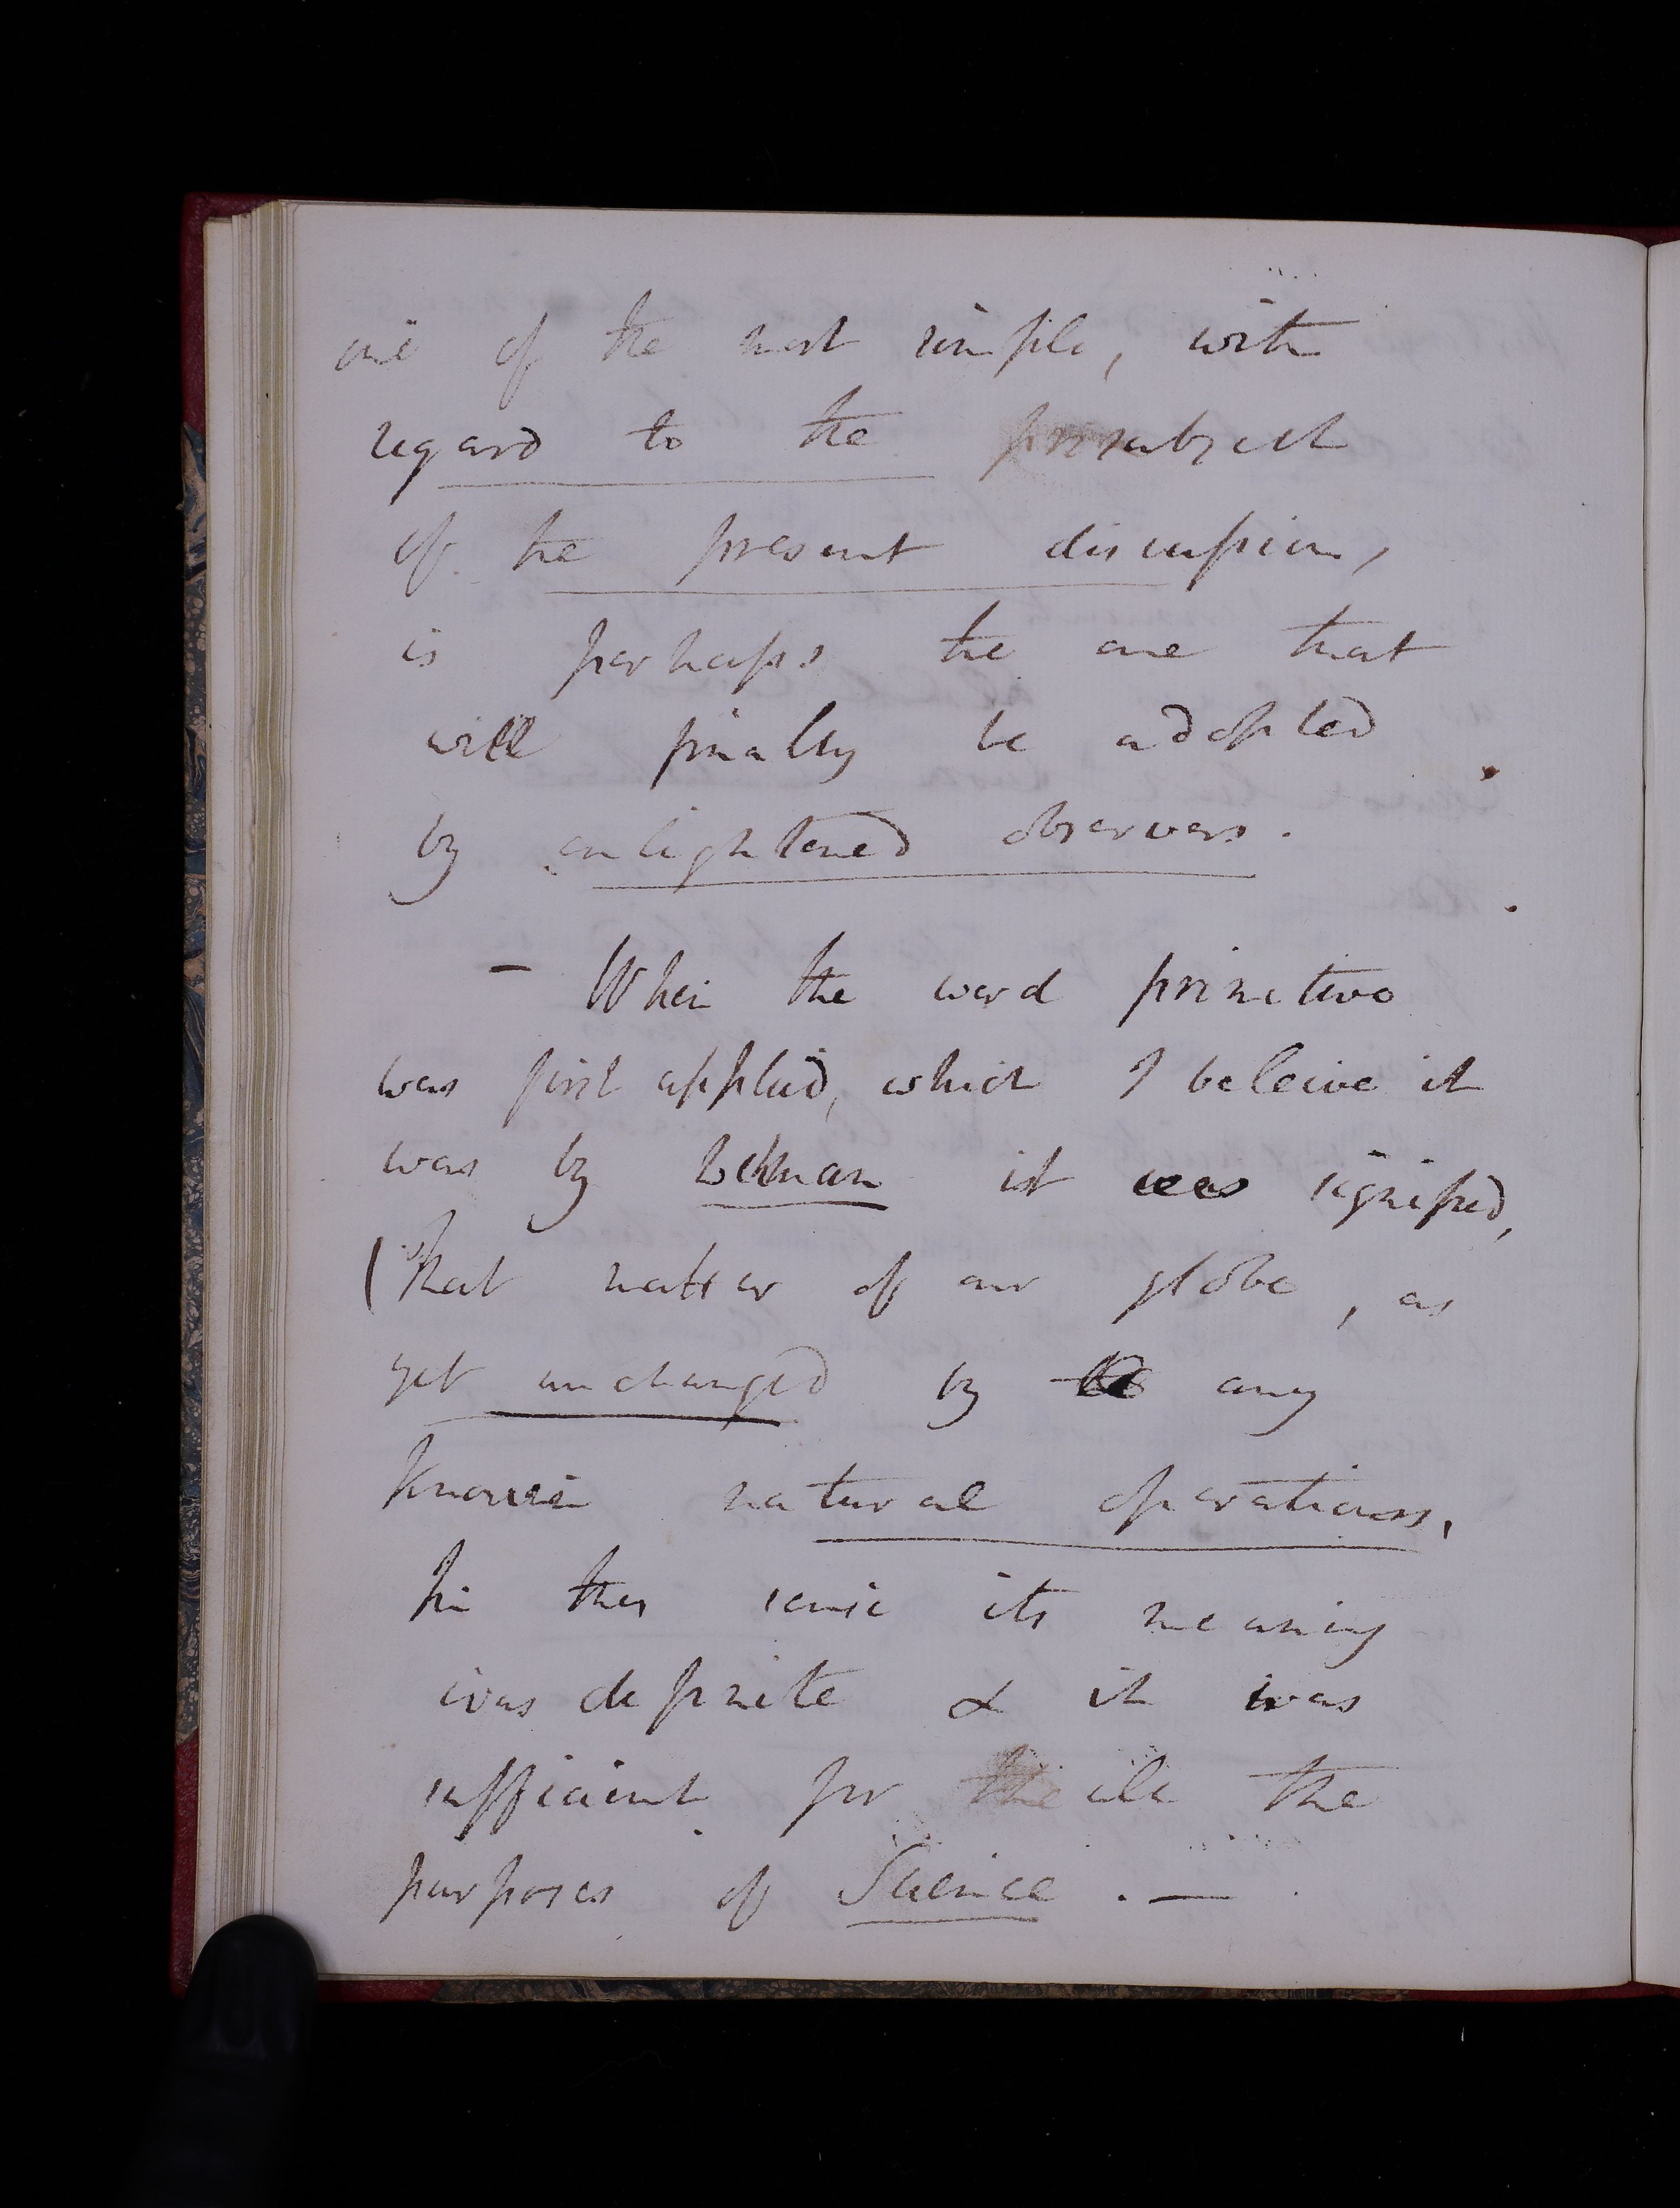 one of the most simple, with
regard to the subject
of the present discussion,
is perhaps the one that
will finally be adopted
by enlightened observers.
– When the word primitive
was first applied, which I beleive it
was by Lehman it signified,
(that matter of our globe, as
yet unchanged by any
known natural operations,
In this sense its meaning
was definite & it was
sufficient for all the
purposes of Science. —